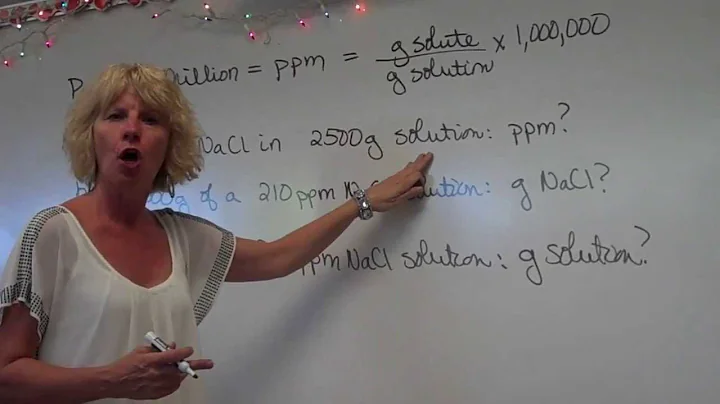 P illion = ppm = g solute / g solution x 1,000,000
NaCl in 2500g solution: ppm?
g of a 210 ppm N lution: g NaCl?
ppm NaCl solution: g solution?